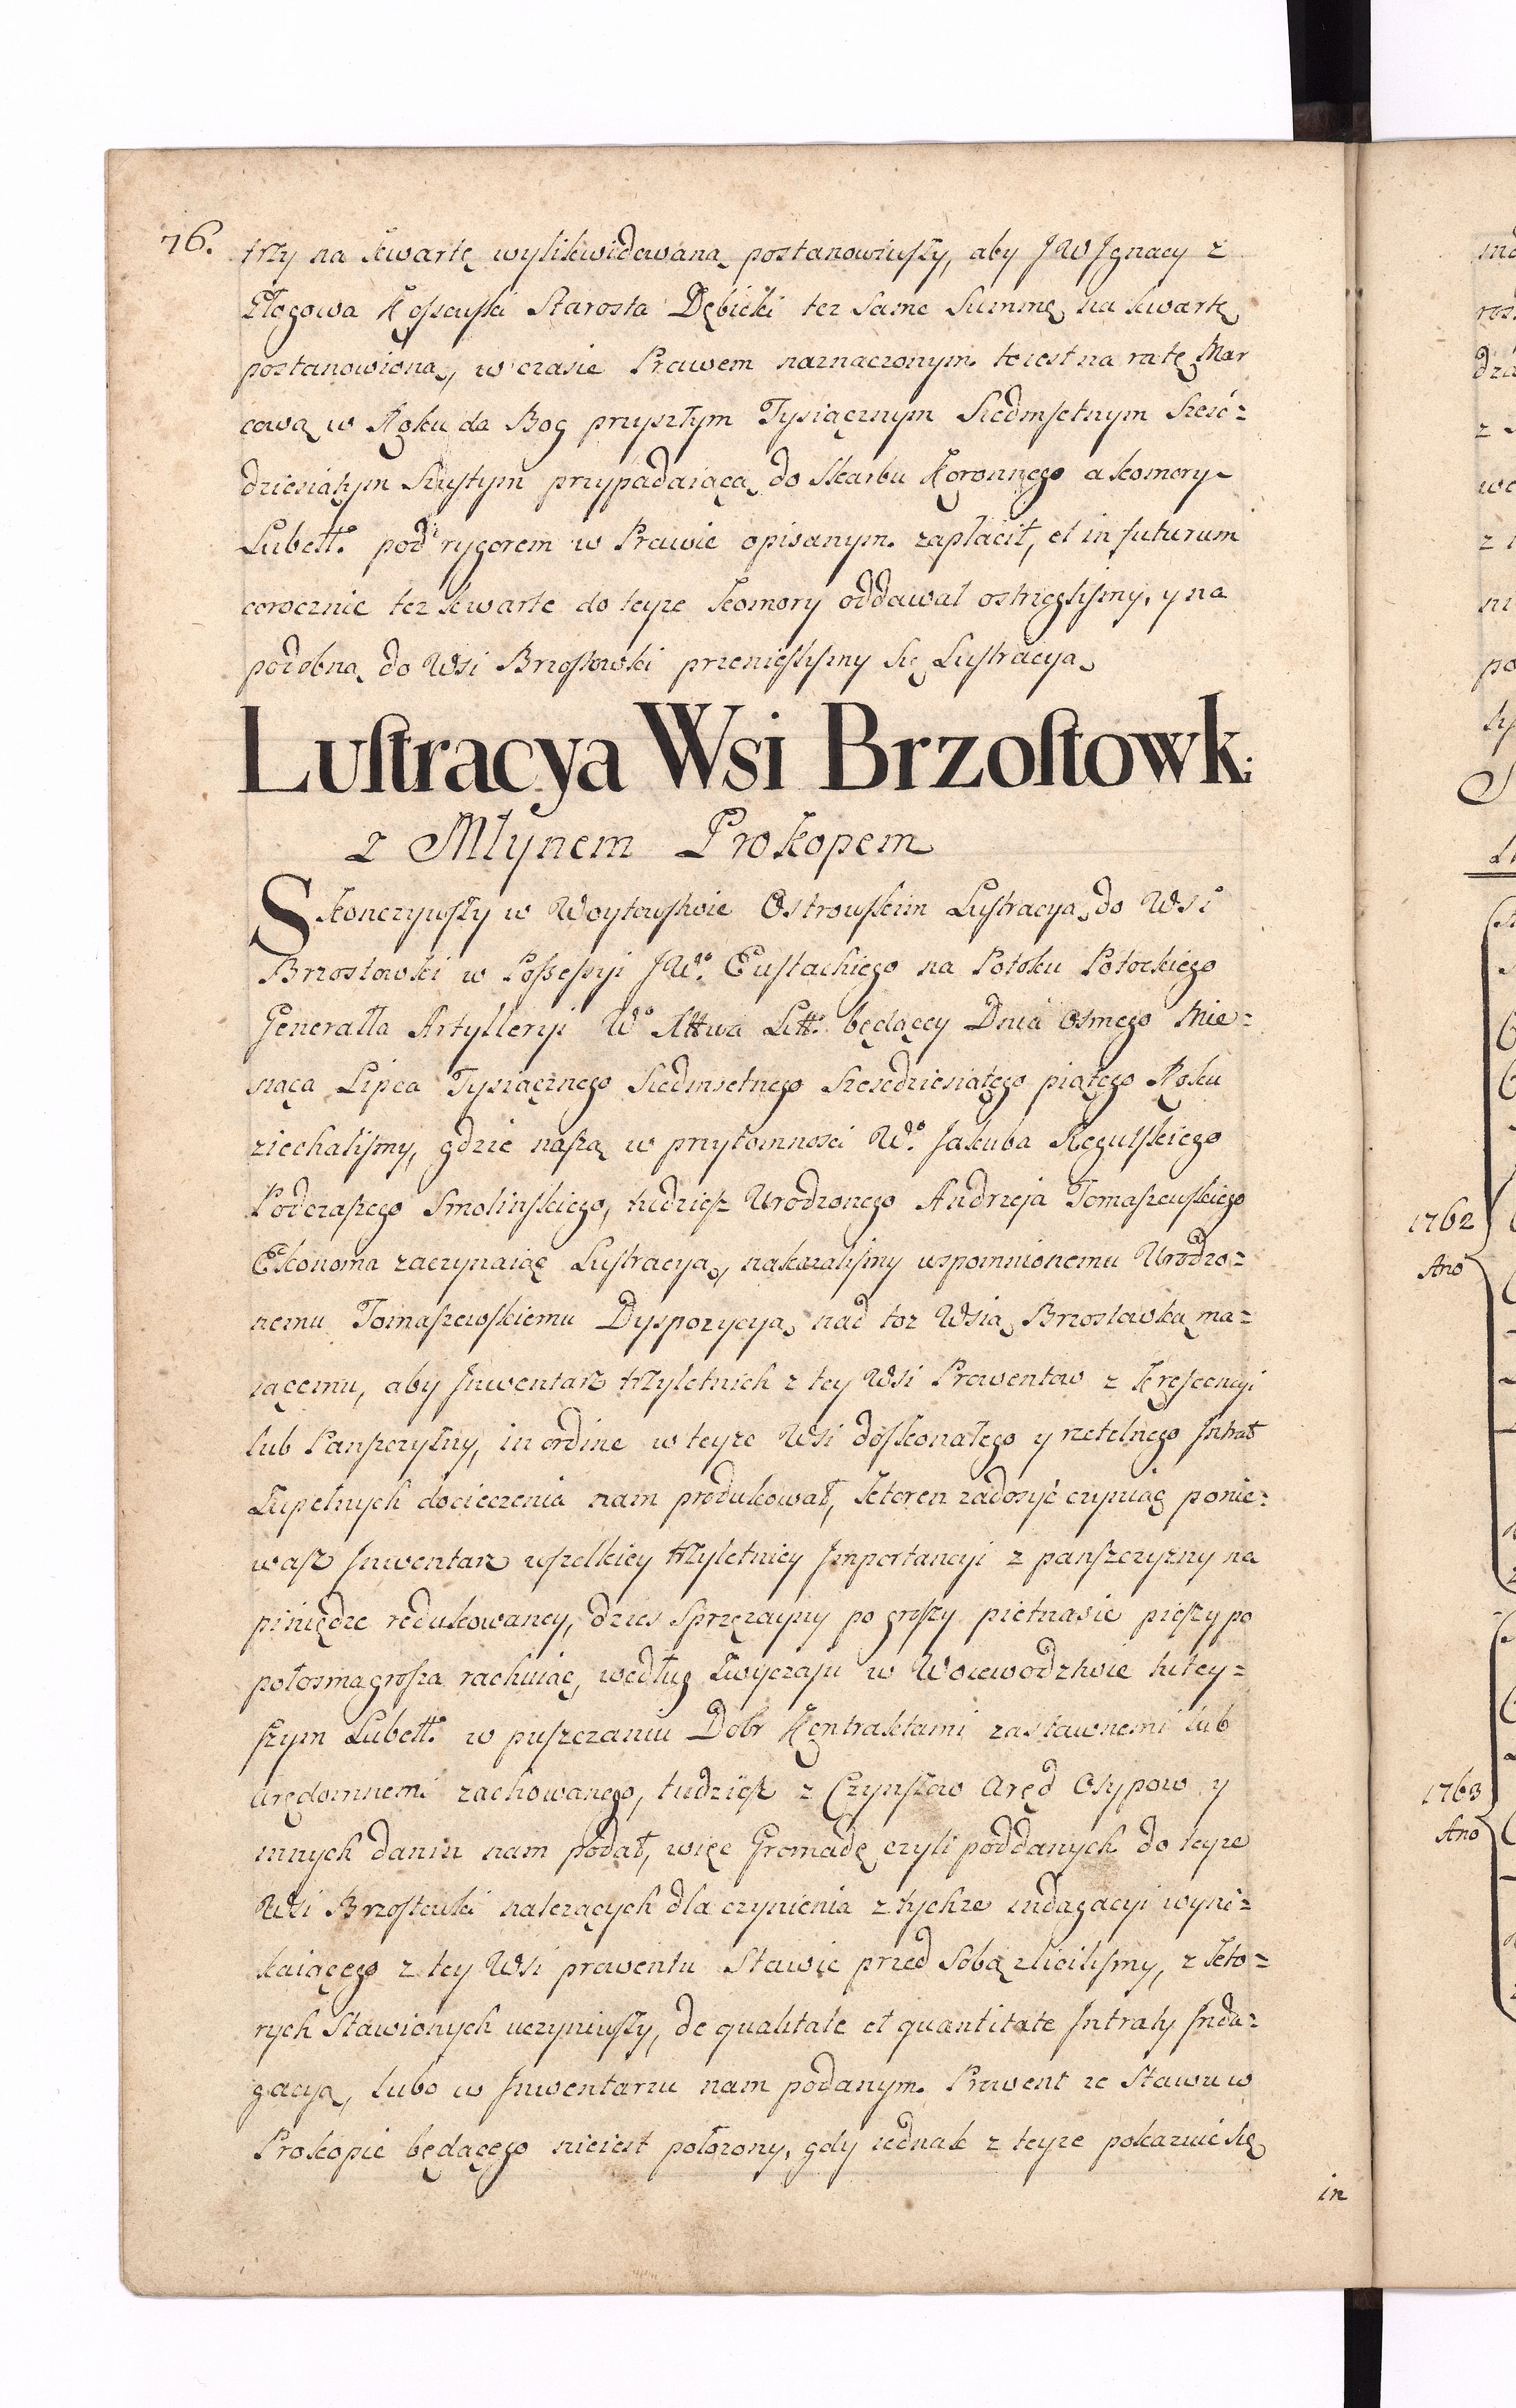 76.
trzy na kwartę wylikwidowaną postanowiwszy, aby JW Jgnacy z
Głogowa Kossowski Starosta Dębicki tez same Summę na kwartę
postanowioną, w czasie Prawem naznaczonym to iest na ratę Mar
cową w Roku da Bog przyszłym Tysiącznym Siedmsetnym Sześć=
dziesiątym Szustym przypadaiącą do Skarbu Koronnego a komory
Lubell: pod rygorem w Prawie opisanym zapłacił, et in futurum
corocznie tez kwarte do teyze komory oddawał ostrzeglismy, y na
podobną do Wsi Brzostowki przenieslismy się Lustracyą
Lustracya Wsi Brzostowk:
z Młynem Prokopem
Skonczywszy w Woytowstwie Ostrowskim Lustracyą do Wsi
Brzostowki w Possessyi JWo. Eustachiego na Potoku Potockiego
Generała Artylleryi Wo Xttwa Litt: będącey Dnia Osmego Mie=
siąca Lipca Tysiącznego Siedmsetnego Szescdziesiątego piątego Roku
ziechalismy, gdzie naszą w przytomnosci Wo. Jakuba Regulskiego
Podczaszego Smolinskiego, tudziesz Urodzonego Andrzeja Tomaszewskiego
Ekonoma zaczynaiąc Lustracyą, nakazalismy wspomnionemu Urodzo=
nemu Tomaszewskiemu Dyspozycyą nad toz Wsią Brzostowką ma=
iącemu, aby Jnwentarz trzyletnich z tey Wsi Prowentow z Krescencyi
lub Panszczyzny, in ordine w teyze Wsi doskonałego y rzetelnego Jntrat
Zupełnych docieczenia nam produkował, ktoren zadosyć czyniąc ponie=
wasz Jnwentarz wszelkiey trzyletniey Jmportancyi z panszczyzny na
piniądze redukowaney, dzien Sprzęzayny po groszy pietnascie pieszy po
połosma grosza rachuiąc, według Zwyczaju w Woiewodztwie tutey=
szym Lubell: w puszczaniu Dobr Kontraktami zastawnemi lub
arędownemi zachowanego, tudziesz z Czynszow Aręd Osypow y
innych danin nam podał, więc Gromadę czyli poddanych do teyze
Wsi Brzostowki nalezących dla czynienia z tychze indagacyi wyni=
kaiącego z tey Wsi prowentu Stawic przed Sobą zleciliśmy, z kto=
rych Stawionych uczyniwszy, de qualitate et quantitate Jntraty Jnda=
gacyą, lubo w Jnwentarzu nam podanym Prowent ze Stawu w
Prokopie będącego nieiest połozony, gdy iednak z teyze pokazuie się
in
1762
Ano
1763
Ano